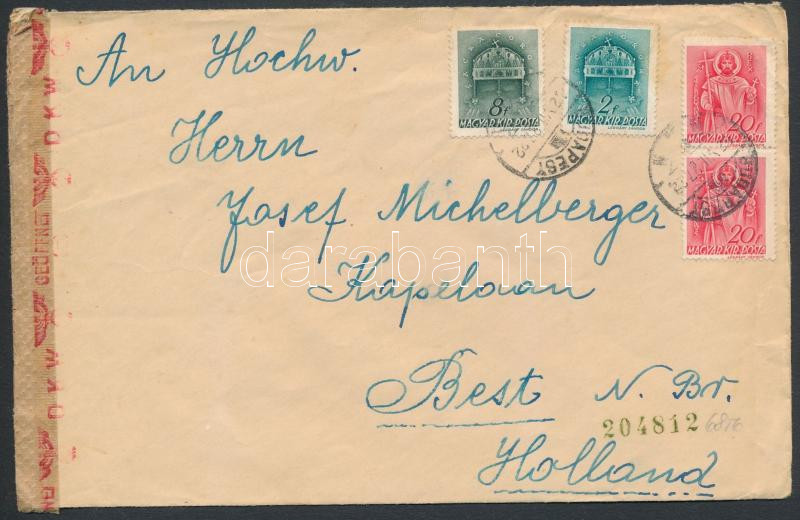 An Hochw.
Herrn
Josef Michelberger
Kapelaan
Best N. Br.
Holland
204812
8f
MAGYAR KIR. POSTA
2f
MAGYAR KIR. POSTA
20f
MAGYAR KIR. POSTA
20f
MAGYAR KIR. POSTA
BUDAPEST
OKW
GEÖFFNET
OKW
darabanth